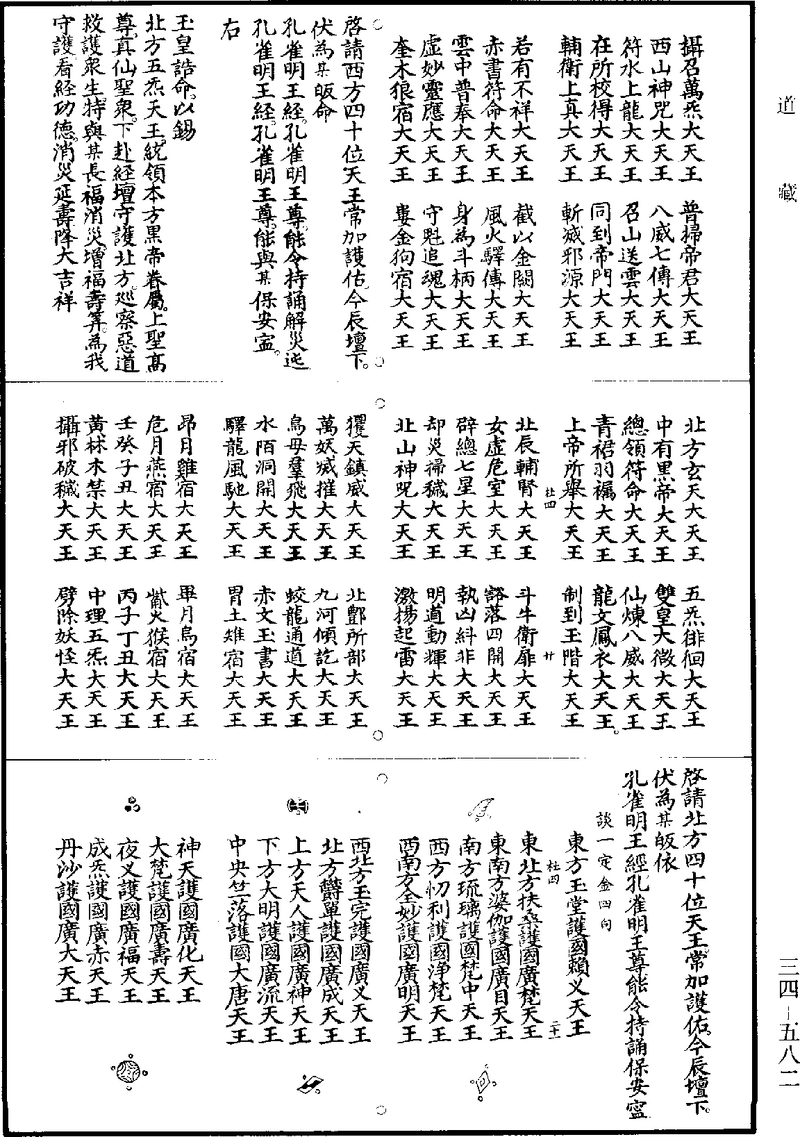 道藏
攝召萬炁大天王　普掃帝君大天王
西山神咒大天王　八威七傳大天王
符水上龍大天王　召山送雲大天王
在所校得大天王　同到帝門大天王
輔衛上真大天王　斬滅邪源大天王
若有不祥大天王　截以金關大天王
赤書符命大天王　風火驛傳大天王
雲中普奉大天王　身為斗柄大天王
虛妙靈應大天王　守魁追魂大天王
奎木狼宿大天王　婁金狗宿大天王
啓請西方四十位天王常加護佑今辰壇下。
伏為某皈命
孔雀明王經。孔雀明王尊。能令持誦解災迍
孔雀明王經。孔雀明王尊。能與某保安寍。
右
玉皇誥命。以錫
北方五炁天王統領本方黑帝眷屬。上聖高
尊。真仙聖衆。下赴經壇守護北方。巡察惡道
救護衆生。特與某長福消災。增福壽筭。為我
守護看經功德。消災延壽降大吉祥
北方玄天大天王　五炁徘徊大天王
中有黑帝大天王　雙皇太微大天王
總領符命大天王　仙煉八威大天王
青裙羽襹大天王　龍文鳳衣大天王。
上帝所舉大天王　制到玉階大天王
杜四　廿
北辰輔腎大天王　斗牛衛扉大天王
女虛危室大天王　豁落四開大天王
辟總七星大天王　執凶糾非大天王
却災掃穢大天王　明道動輝大天王
北山神咒大天王　激揚起雷大天王
玃天鎮威大天王　北酆所部大天王
萬妖滅摧大天王　九河傾訖大天王
鳥母羣飛大天王　蛟龍通道大天王
水陌洞開大天王　赤文玉書大天王
驛龍風馳大天王　胃土雉宿大天王
昴日雞宿大天王　畢月烏宿大天王
危月燕宿大天王　觜火猴宿大天王
壬癸子丑大天王　丙子丁丑大天王
黃林木禁大天王　中理五炁大天王
攝邪破穢大天王　劈除妖怪大天王
啓請北方四十位天王。常加護佑。今辰壇下。
伏為某皈依
孔雀明王經孔雀明王尊能令持誦保安寍
談一定金四句
東方玉堂護國賴义天王
杜四　二十一
東北方扶桑護國廣梵天王
東南方婆伽護國廣目天王
南方琉璃護國梵中天王
西方忉利護國淨梵天王
西南方全妙護國廣明天王
西北方玉完護國廣义天王
北方欝單護國廣成天王
上方天人護國廣神天王
下方大明護國廣流天王
中央竺落護國大唐天王
神天護國廣化天王
大梵護國廣壽天王
夜义護國廣福天王
成炁護國廣赤天王
丹沙護國廣大天王
三四－五八二